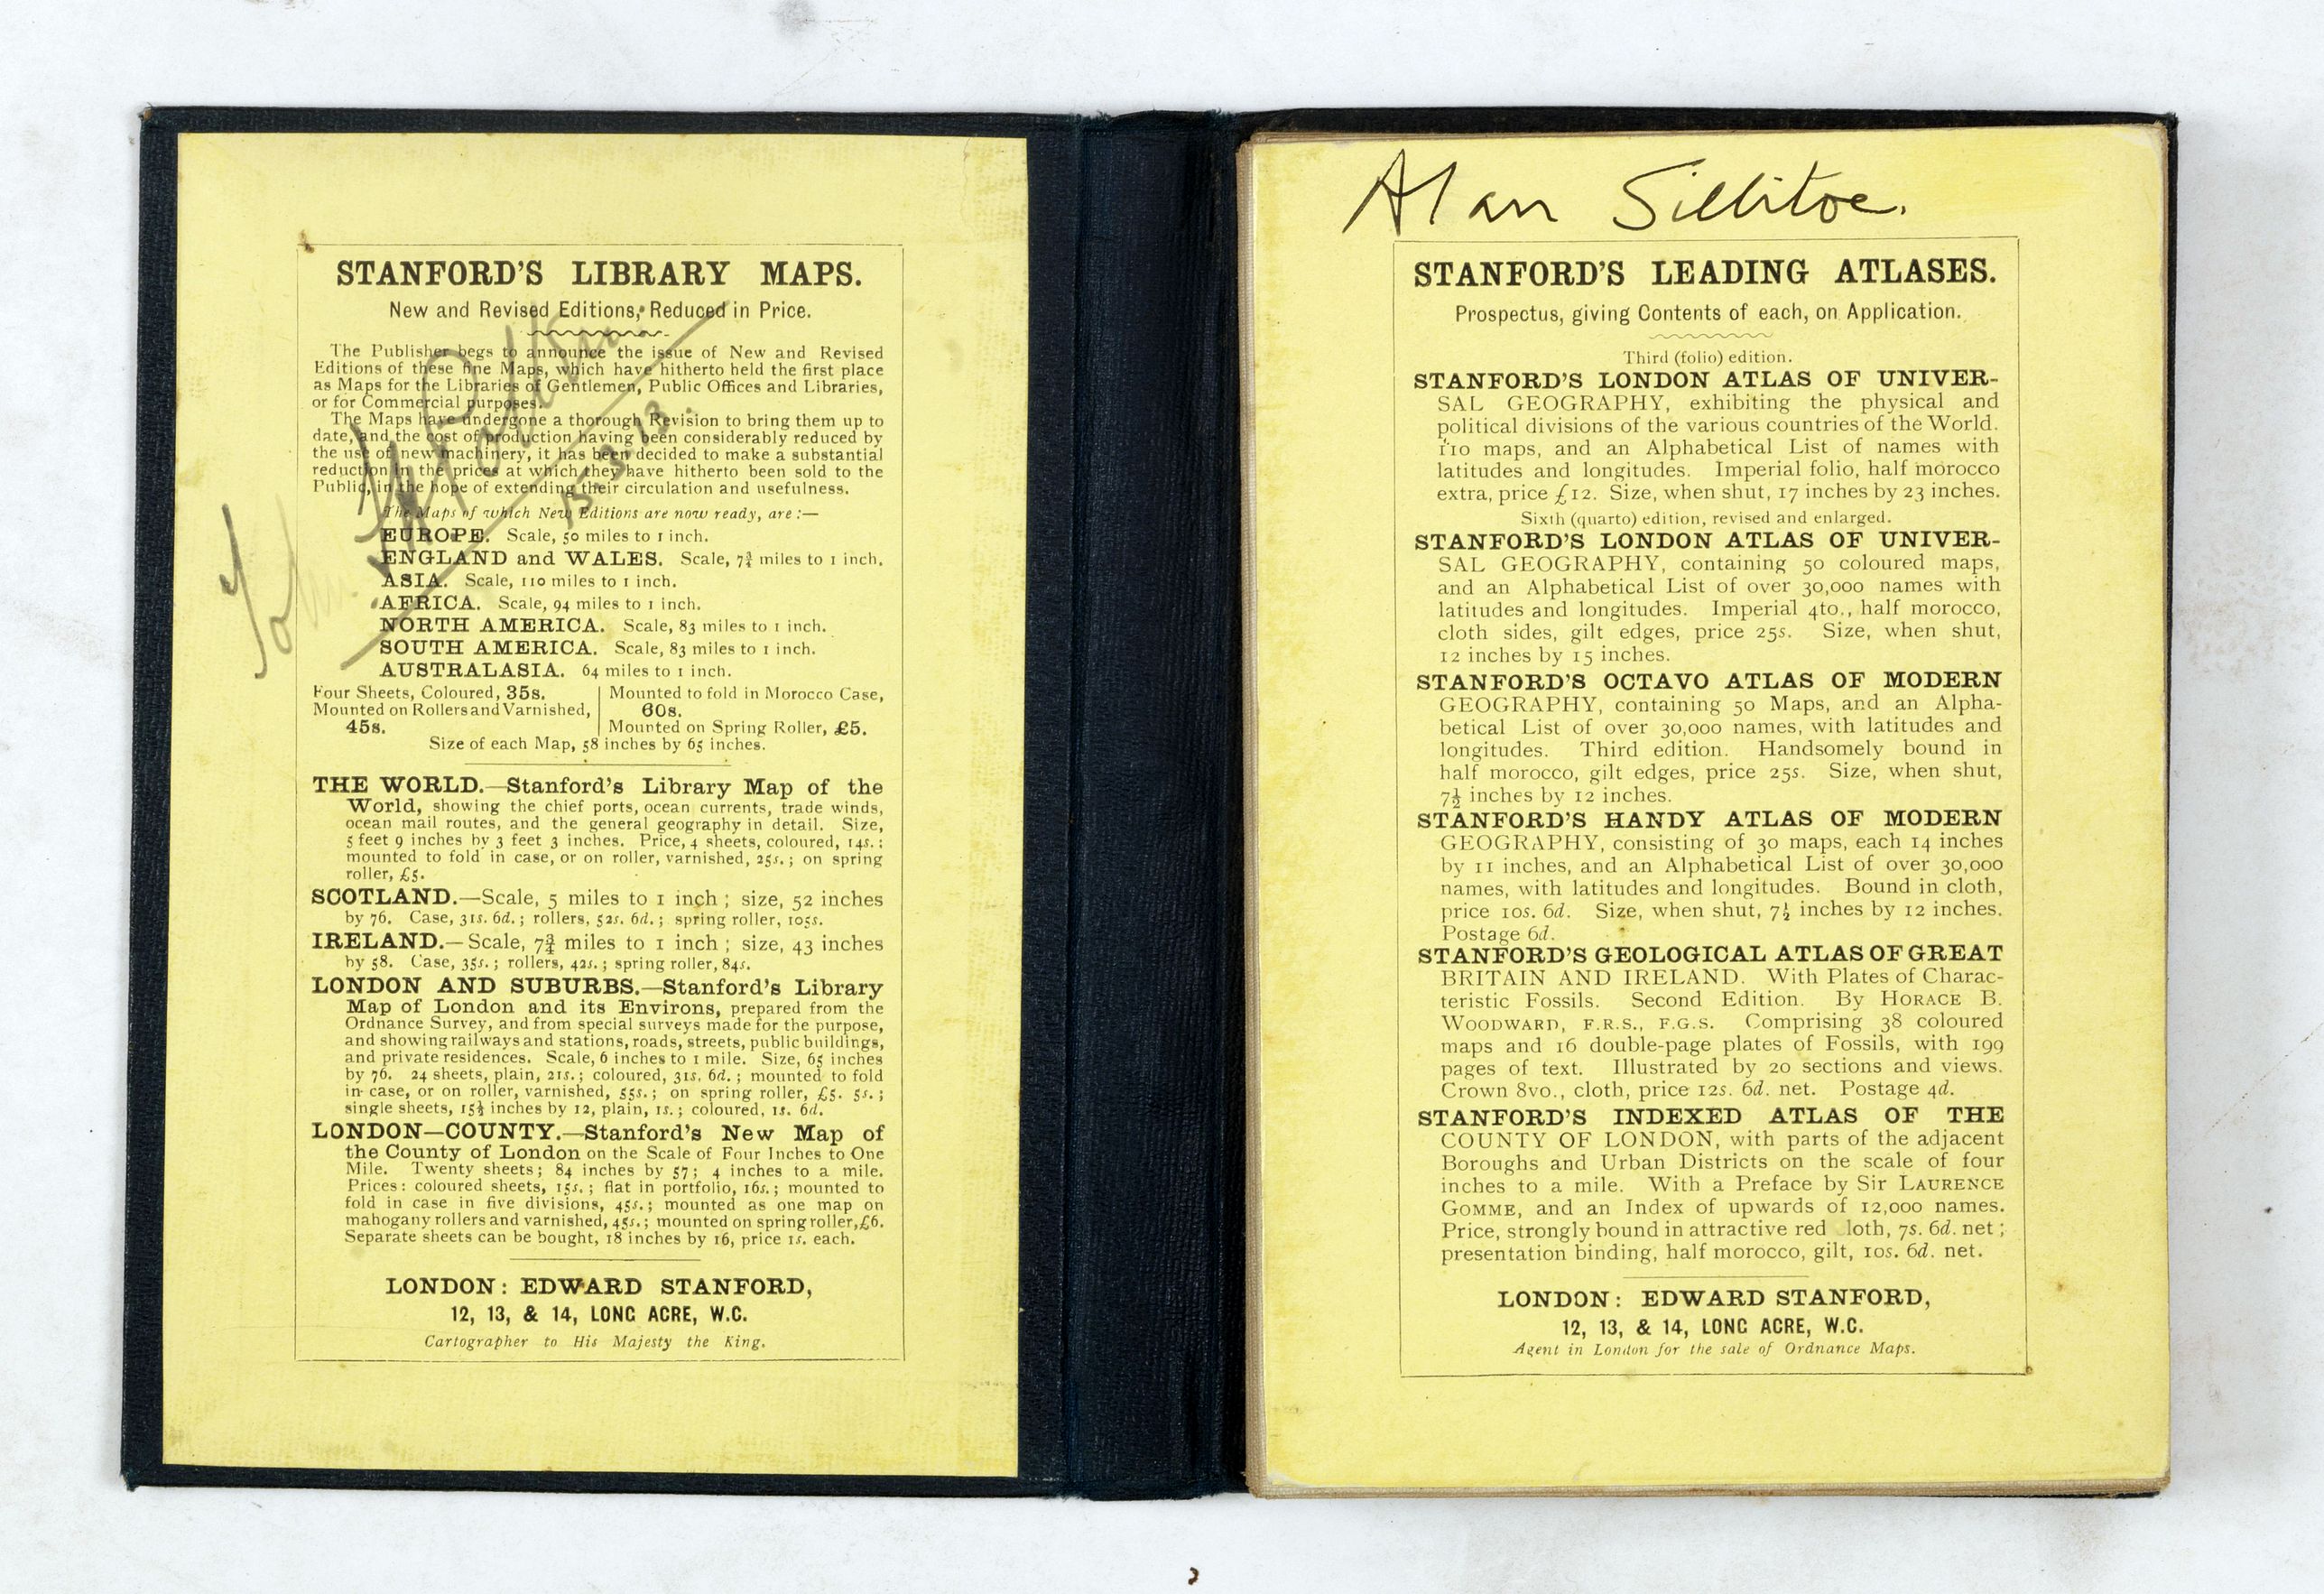 STANFORD'S LIBRARY MAPS.
New and Revised Editions, Reduced in Price.
The Publisher begs to announce the issue of New and Revised
Editions of these fine Maps, which have hitherto held the first place
as Maps for the Libraries of Gentlemen, Public Offices and Libraries,
or for Commercial purposes.
The Maps have undergone a thorough Revision to bring them up to
date, and the cost of production having been considerably reduced by
the use of new machinery, it has been decided to make a substantial
reduction in the prices at which they have hitherto been sold to the
Public, in the hope of extending their circulation and usefulness.
The Maps of which New Editions are now ready, are :—
EUROPE. Scale, 50 miles to 1 inch.
ENGLAND and WALES. Scale, 7¾ miles to 1 inch.
ASIA. Scale, 110 miles to 1 inch.
AFRICA. Scale, 94 miles to 1 inch.
NORTH AMERICA. Scale, 83 miles to 1 inch.
SOUTH AMERICA. Scale, 83 miles to 1 inch.
AUSTRALASIA. 64 miles to 1 inch.
Four Sheets, Coloured, 35s.
Mounted on Rollers and Varnished,
45s.
Mounted to fold in Morocco Case,
60s.
Mounted on Spring Roller, £5.
Size of each Map, 58 inches by 65 inches.
THE WORLD.—Stanford's Library Map of the
World, showing the chief ports, ocean currents, trade winds,
ocean mail routes, and the general geography in detail. Size,
5 feet 9 inches by 3 feet 3 inches. Price, 4 sheets, coloured, 14s. :
mounted to fold in case, or on roller, varnished, 25s. ; on spring
roller, £5.
SCOTLAND.—Scale, 5 miles to 1 inch ; size, 52 inches
by 76. Case, 31s. 6d. ; rollers, 52s. 6d. ; spring roller, 105s.
IRELAND.—Scale, 7¾ miles to 1 inch ; size, 43 inches
by 58. Case, 35s. ; rollers, 42s. ; spring roller, 84s.
LONDON AND SUBURBS.—Stanford's Library
Map of London and its Environs, prepared from the
Ordnance Survey, and from special surveys made for the purpose,
and showing railways and stations, roads, streets, public buildings,
and private residences. Scale, 6 inches to 1 mile. Size, 65 inches
by 76. 24 sheets, plain, 21s. ; coloured, 31s. 6d. ; mounted to fold
in case, or on roller, varnished, 55s. ; on spring roller, £5. 5s. ;
single sheets, 15½ inches by 12, plain, 1s. ; coloured, 1s. 6d.
LONDON—COUNTY.—Stanford's New Map of
the County of London on the Scale of Four Inches to One
Mile. Twenty sheets ; 84 inches by 57 ; 4 inches to a mile.
Prices : coloured sheets, 15s. ; flat in portfolio, 16s. ; mounted to
fold in case in five divisions, 45s. ; mounted as one map on
mahogany rollers and varnished, 45s. ; mounted on spring roller, £6.
Separate sheets can be bought, 18 inches by 16, price 1s. each.
LONDON : EDWARD STANFORD,
12, 13, & 14, LONG ACRE, W.C.
Cartographer to His Majesty the King.
John
15.3.13.
Alan Sillitoe.
STANFORD'S LEADING ATLASES.
Prospectus, giving Contents of each, on Application.
Third (folio) edition.
STANFORD'S LONDON ATLAS OF UNIVER-
SAL GEOGRAPHY, exhibiting the physical and
political divisions of the various countries of the World.
110 maps, and an Alphabetical List of names with
latitudes and longitudes. Imperial folio, half morocco
extra, price £12. Size, when shut, 17 inches by 23 inches.
Sixth (quarto) edition, revised and enlarged.
STANFORD'S LONDON ATLAS OF UNIVER-
SAL GEOGRAPHY, containing 50 coloured maps,
and an Alphabetical List of over 30,000 names with
latitudes and longitudes. Imperial 4to., half morocco,
cloth sides, gilt edges, price 25s. Size, when shut,
12 inches by 15 inches.
STANFORD'S OCTAVO ATLAS OF MODERN
GEOGRAPHY, containing 50 Maps, and an Alpha-
betical List of over 30,000 names, with latitudes and
longitudes. Third edition. Handsomely bound in
half morocco, gilt edges, price 25s. Size, when shut,
7½ inches by 12 inches.
STANFORD'S HANDY ATLAS OF MODERN
GEOGRAPHY, consisting of 30 maps, each 14 inches
by 11 inches, and an Alphabetical List of over 30,000
names, with latitudes and longitudes. Bound in cloth,
price 10s. 6d. Size, when shut, 7½ inches by 12 inches.
Postage 6d.
STANFORD'S GEOLOGICAL ATLAS OF GREAT
BRITAIN AND IRELAND. With Plates of Charac-
teristic Fossils. Second Edition. By HORACE B.
WOODWARD, F.R.S., F.G.S. Comprising 38 coloured
maps and 16 double-page plates of Fossils, with 199
pages of text. Illustrated by 20 sections and views.
Crown 8vo., cloth, price 12s. 6d. net. Postage 4d.
STANFORD'S INDEXED ATLAS OF THE
COUNTY OF LONDON, with parts of the adjacent
Boroughs and Urban Districts on the scale of four
inches to a mile. With a Preface by Sir LAURENCE
GOMME, and an Index of upwards of 12,000 names.
Price, strongly bound in attractive red loth, 7s. 6d. net ;
presentation binding, half morocco, gilt, 10s. 6d. net.
LONDON : EDWARD STANFORD,
12, 13, & 14, LONG ACRE, W.C.
Agent in London for the sale of Ordnance Maps.